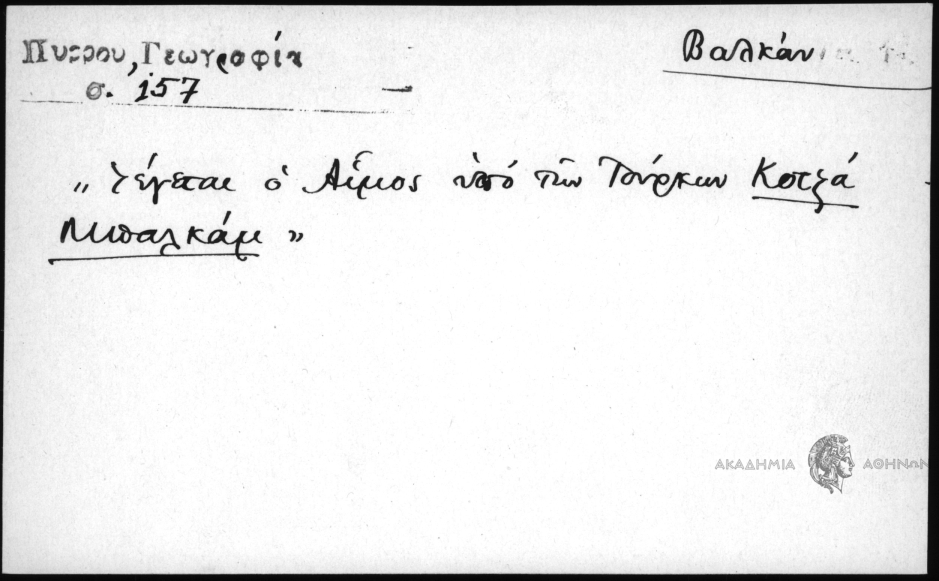 Πυρρου, Γεωγραφία
σ. 157
Βαλκάν
„ λέγεται ὁ Αἷμος ὑπό τῶν Τούρκων Κοτζά
Μπαλκάμ "
ΑΚΑΔΗΜΙΑ ΑΘΗΝΩΝ